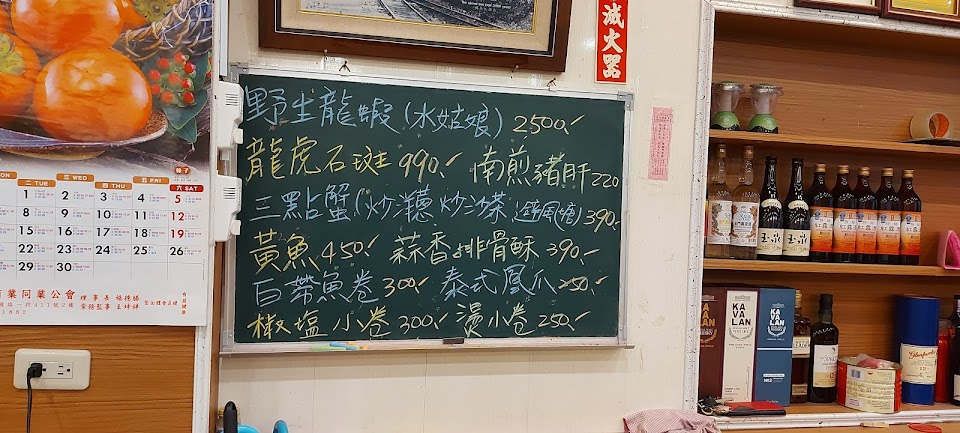 滅火器
野生龍蝦(水姑娘) 2500/-
龍虎石斑 990/- 南煎豬肝 220
三點蟹(炒洋蔥 炒沙茶 避風塘) 390/-
黃魚 450/- 蒜香排骨酥 390/-
白帶魚卷 300/- 泰式鳳爪
椒塩小卷 300/- 燙小卷 250/-
二 TUE 三 WED 四 THU 五 FRI 六 SAT
1 2 3 4 5
8 9 10 11 12
15 16 17 18 19
22 23 24 25 26
29 30
柿子
業同業公會
理事長
玉泉
KAVALAN
KAVALAN
Glenfiddich